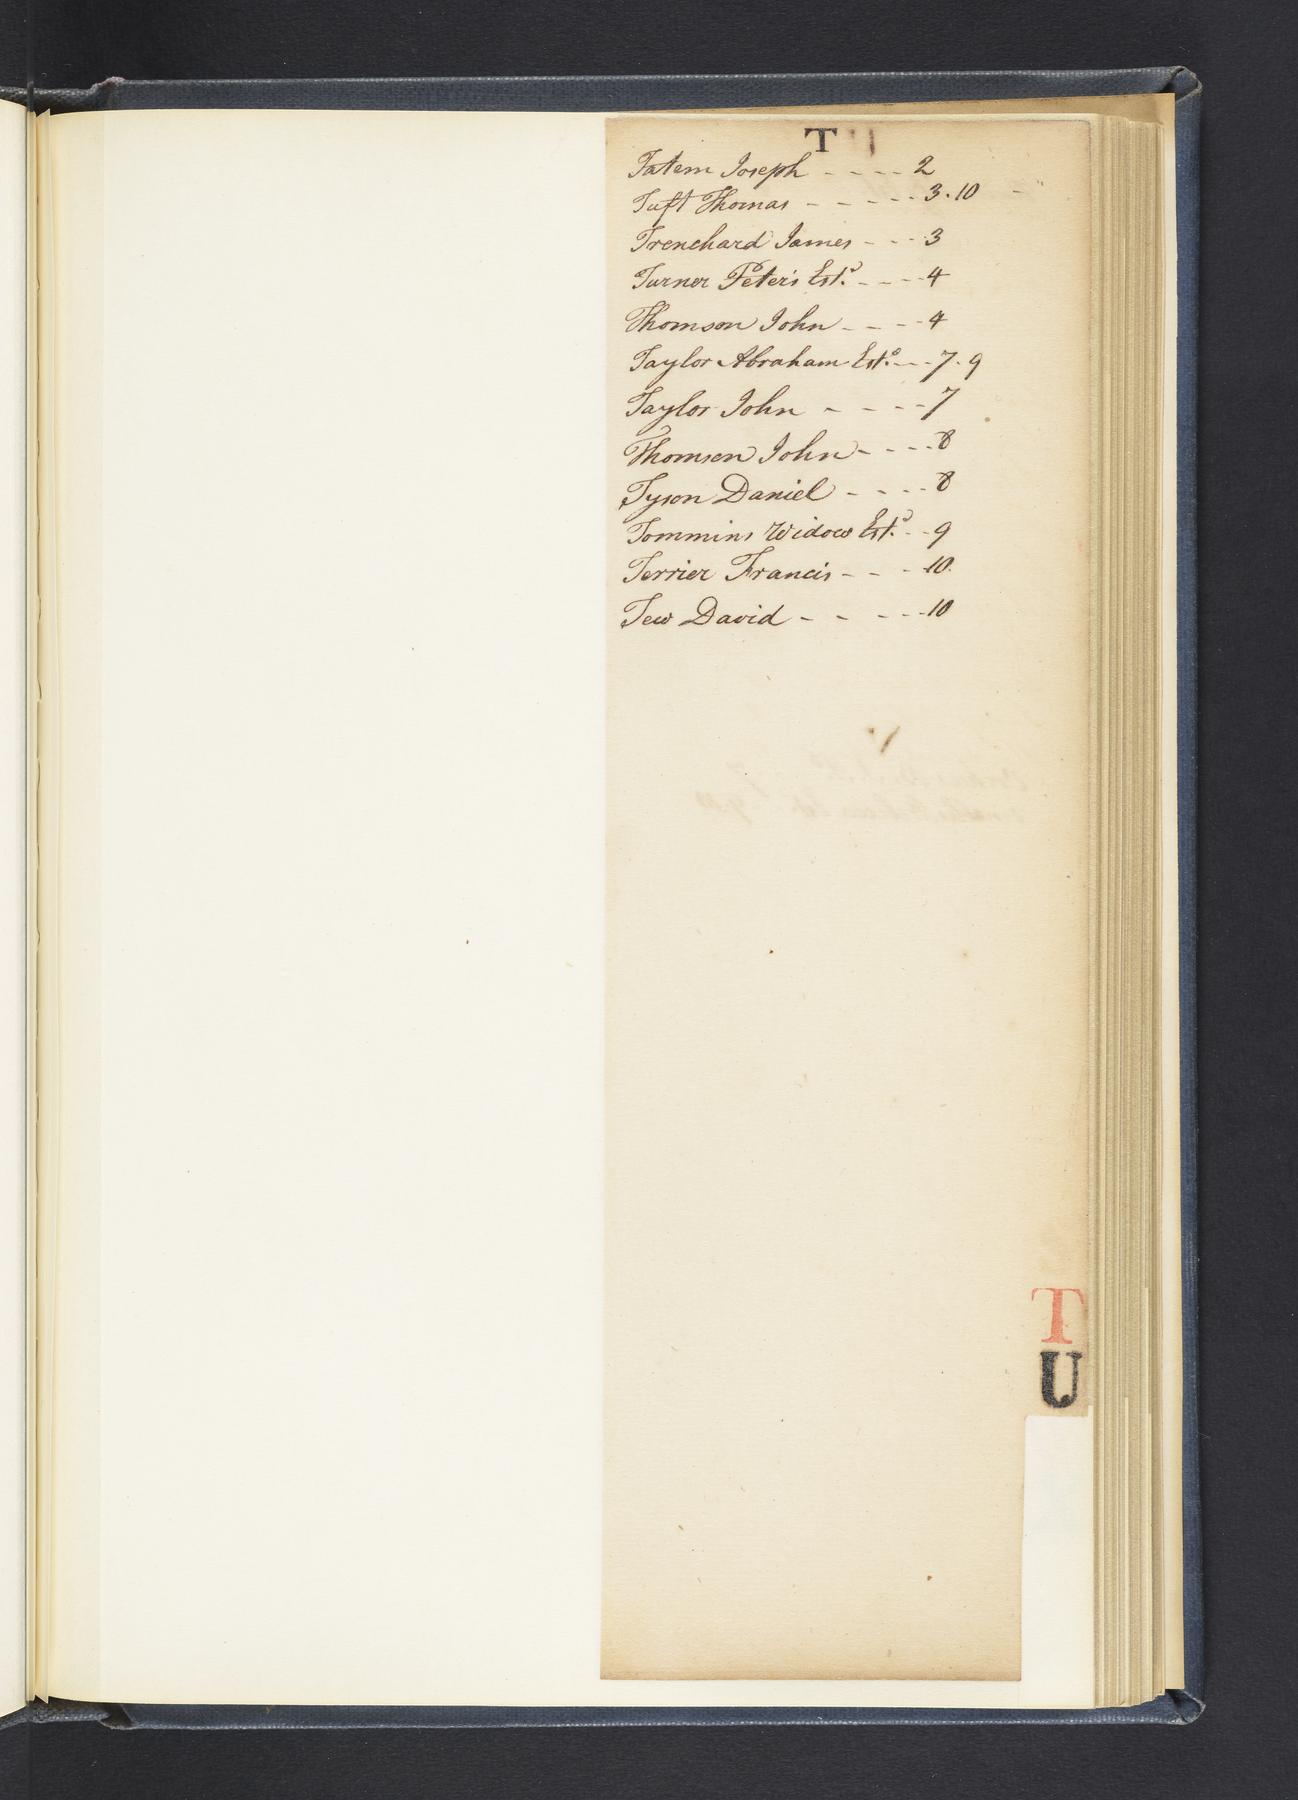 T
Tatem Joseph - - - - 2
Tuft Thomas - - - - - 3.10
Trenchard James - - - 3
Turner Peter's Est.e - - - - 4
Thomson John - - - - 4
Taylor Abraham Est.e - - - 7.9
Taylor John - - - - 7
Thomson John - - - - 8
Tyson Daniel - - - - 8
Tommins Widow Est.e - - 9
Terrier Francis - - - 10.
Tew David - - - - - 10
T
U